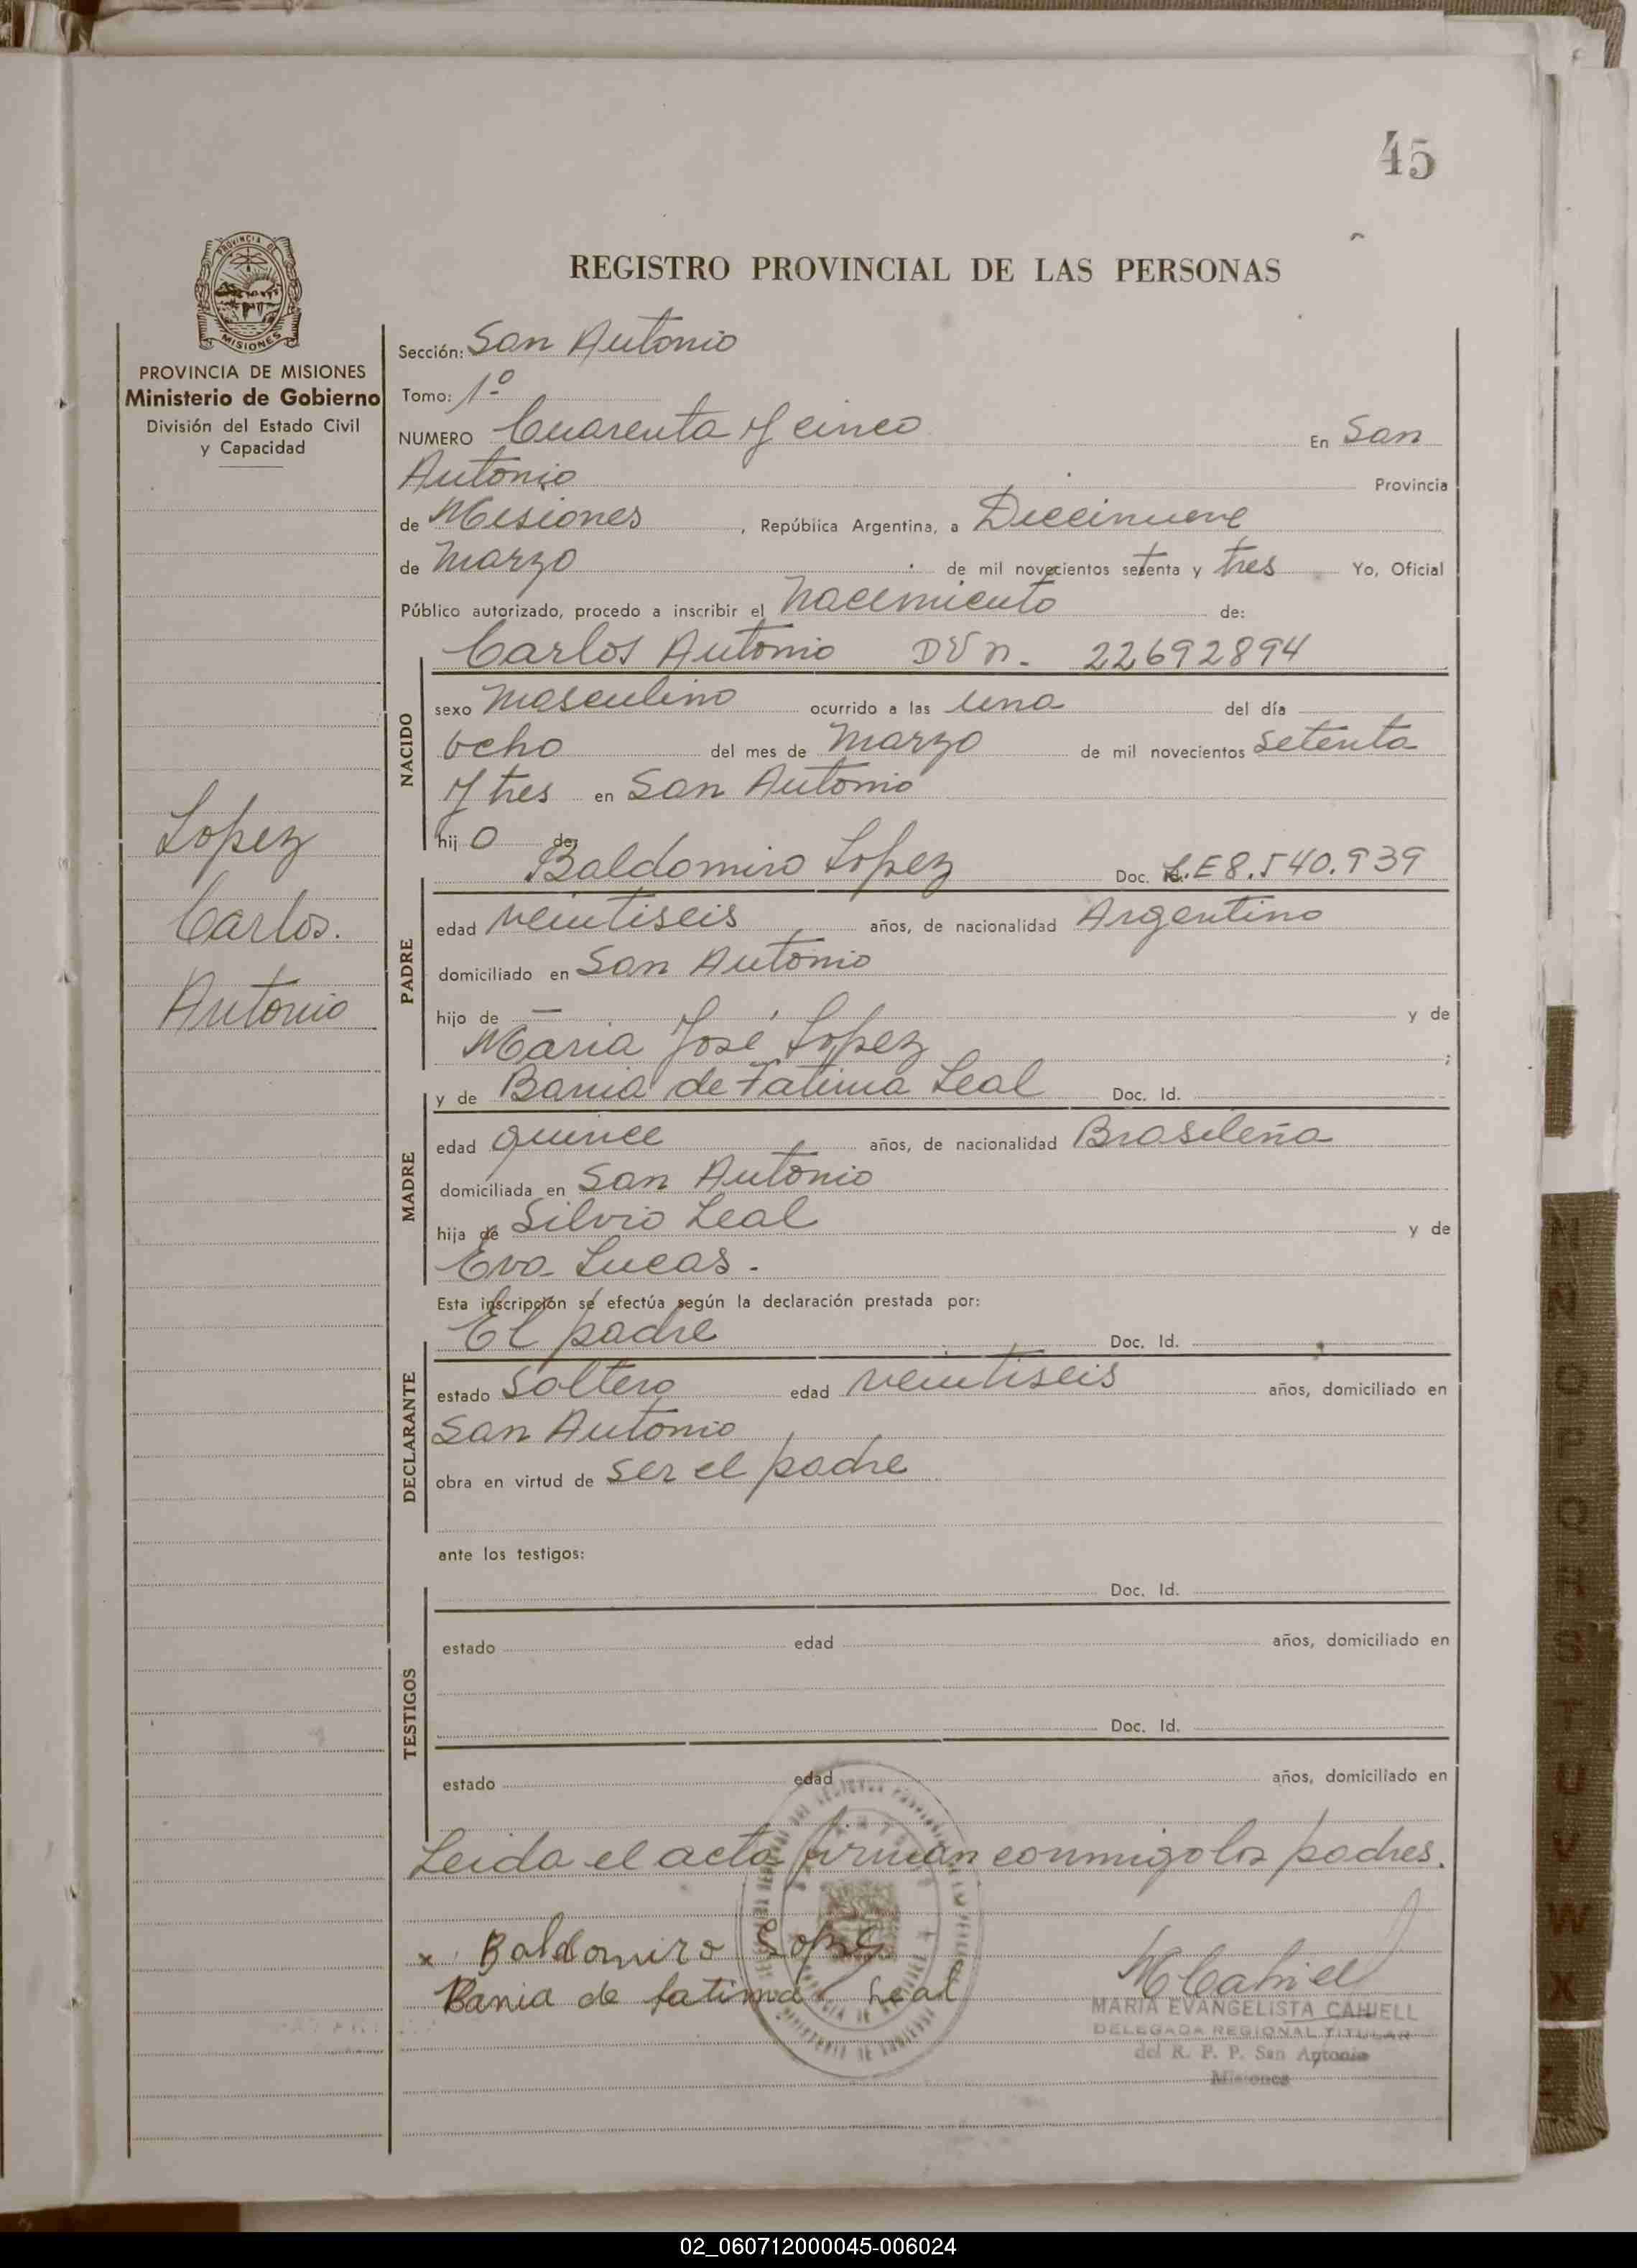 45
REGISTRO PROVINCIAL DE LAS PERSONAS
PROVINCIA DE MISIONES
Ministerio de Gobierno
División del Estado Civil
y Capacidad
Lopez
Carlos.
Antonio
Sección: San Antonio
Tomo: 1º
NUMERO Cuarenta y cinco En San
Antonio Provincia
de Misiones, República Argentina, a Diecinueve
de Marzo de mil novecientos setenta y tres Yo, Oficial
Público autorizado, procedo a inscribir el nacimiento de:
Carlos Antonio DUn. 22692894
NACIDO
sexo masculino ocurrido a las una del día
ocho del mes de marzo de mil novecientos setenta
y tres en San Antonio
hijo de
Baldomiro Lopez Doc. L.E 8.540.939
PADRE
edad veintiseis años, de nacionalidad Argentino
domiciliado en San Antonio
hijo de — y de
Maria José Lopez ;
y de Bania de Fatima Leal Doc. Id.
MADRE
edad quince años, de nacionalidad Brasileña
domiciliada en San Antonio
hija de Silvio Leal y de
Eva Lucas.
Esta inscripción se efectúa según la declaración prestada por:
El padre Doc. Id.
DECLARANTE
estado Soltero edad veintiseis años, domiciliado en
San Antonio
obra en virtud de ser el padre
ante los testigos:
Doc. Id.
TESTIGOS
estado edad años, domiciliado en
Doc. Id.
estado edad años, domiciliado en
Leida el acta firman conmigo los padres.
x Baldomiro Lopez
Bania de fatima Leal
MCahiell
MARIA EVANGELISTA CAHIELL
DELEGADA REGIONAL TITULAR
del R. P. P. San Antonio
Misiones
02_060712000045-006024